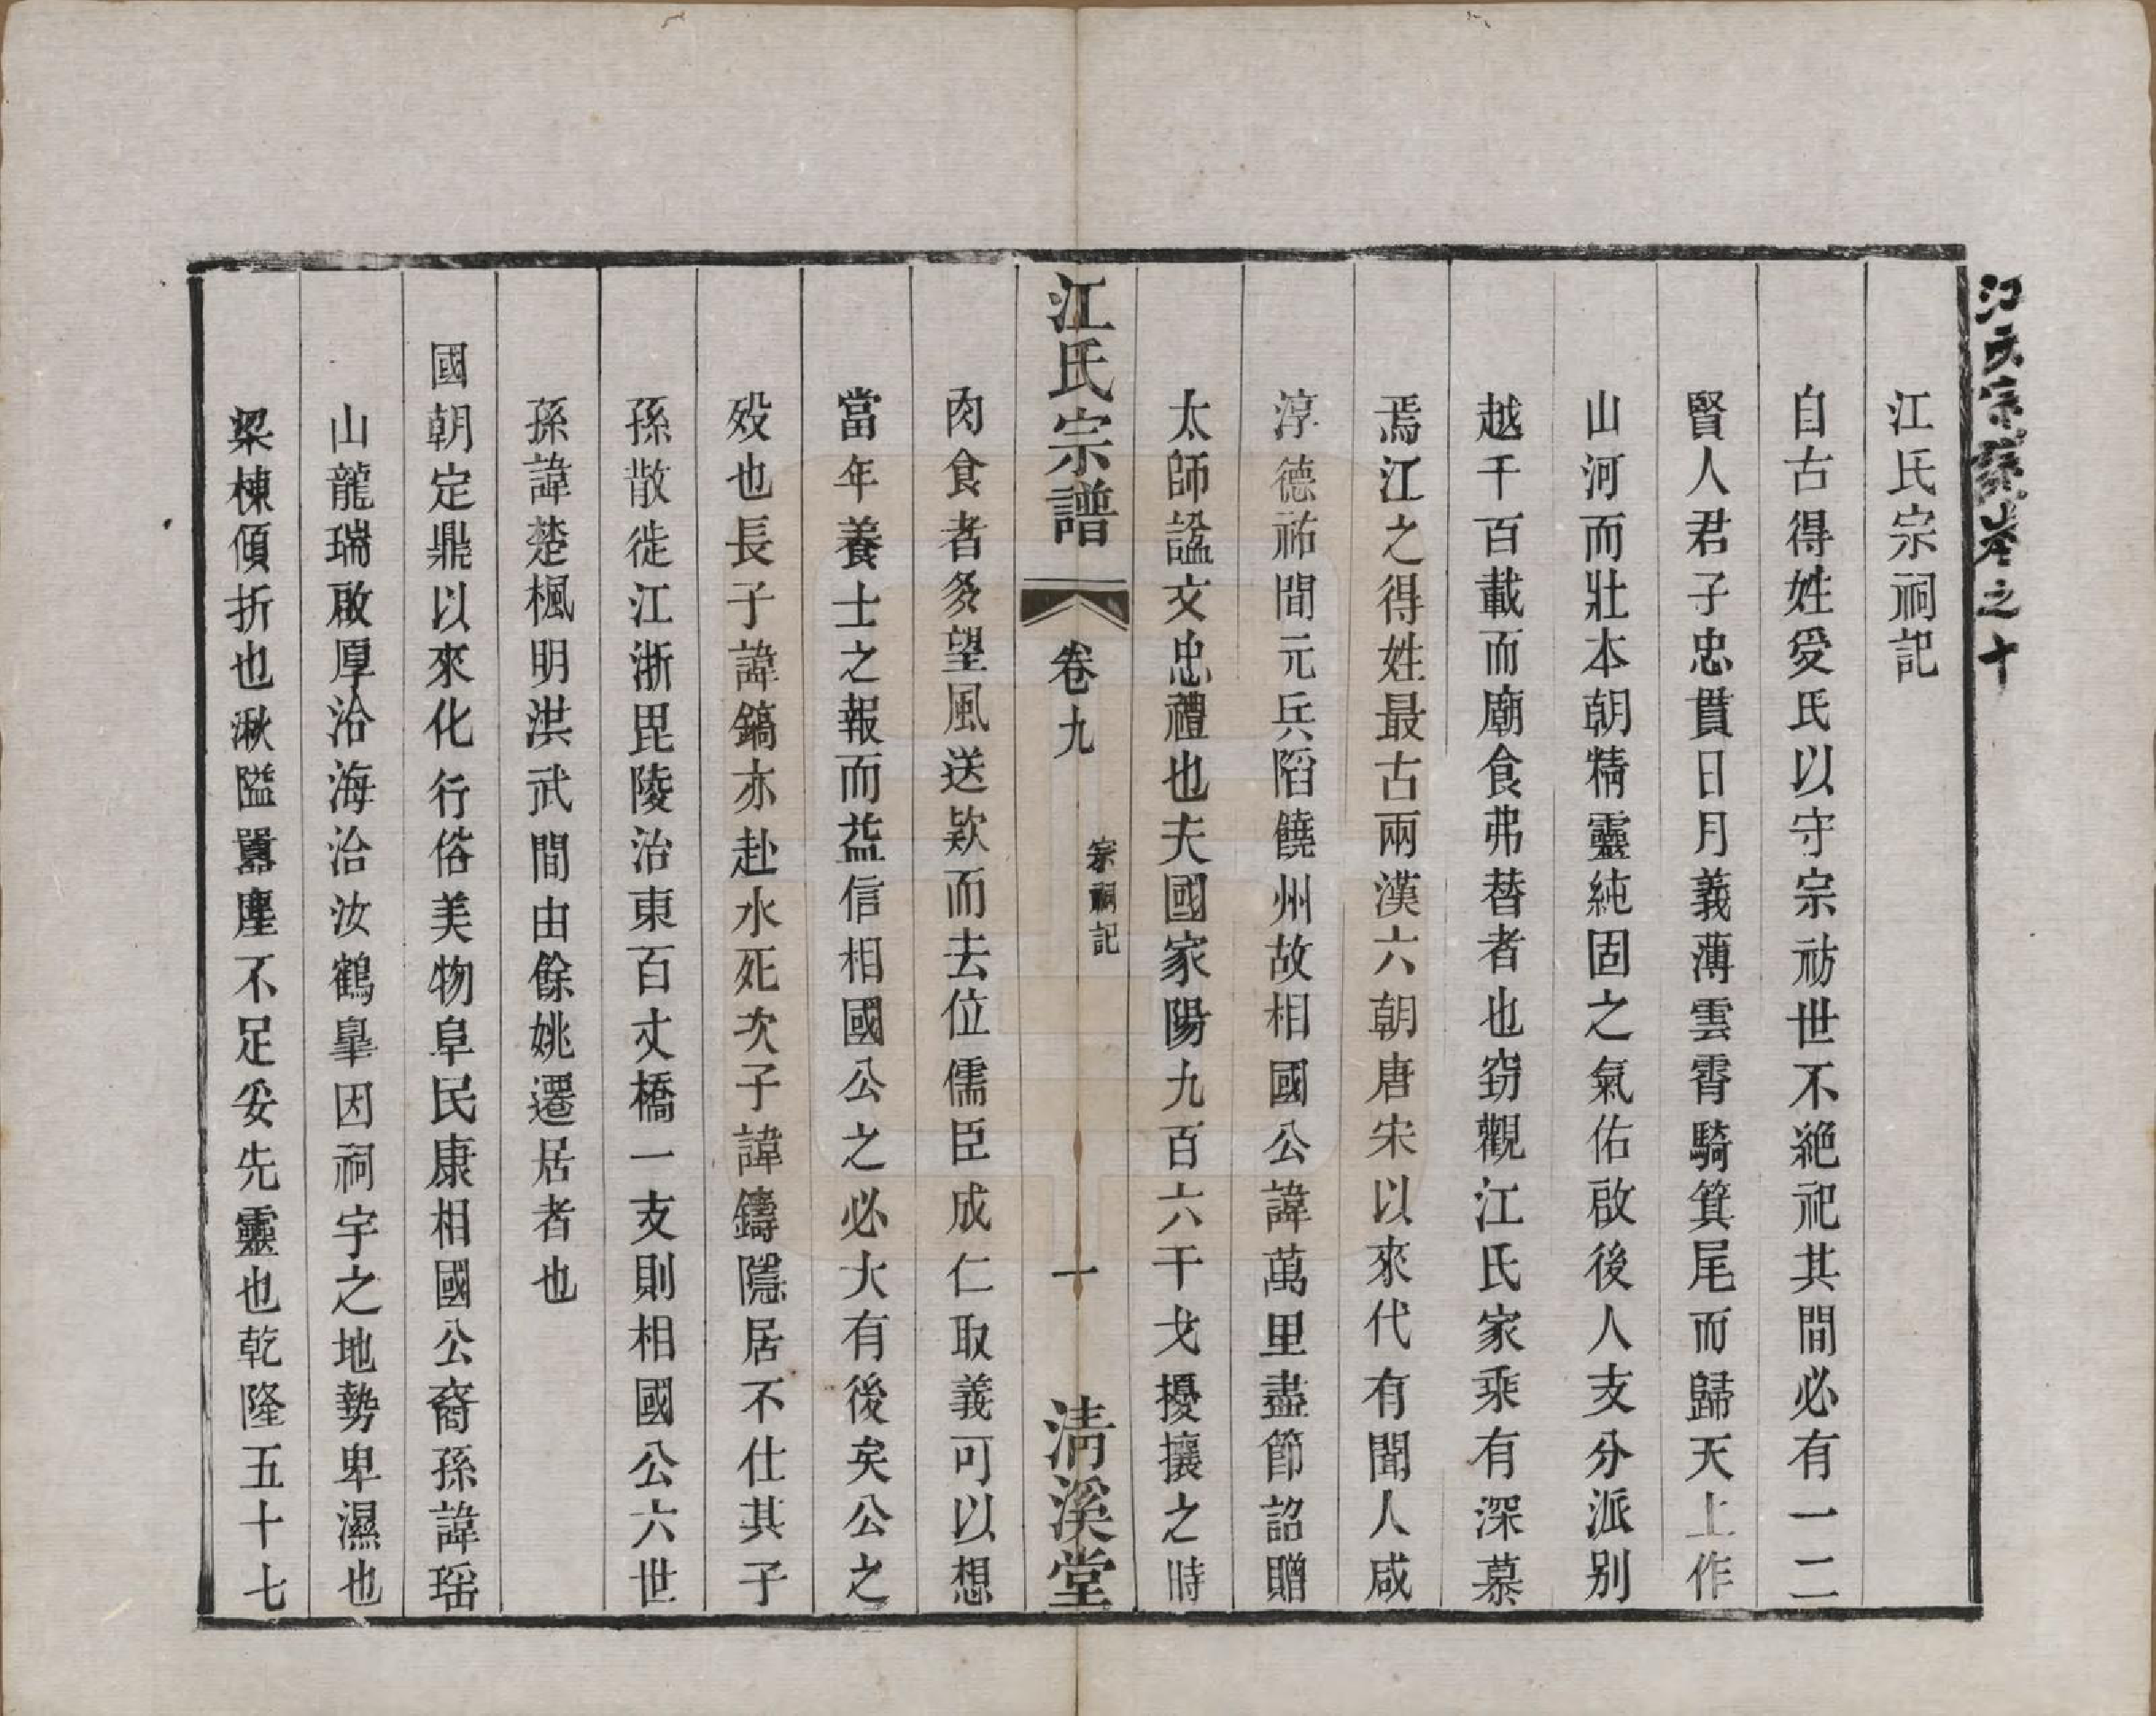 江氏宗譜卷之十
江氏宗祠記
自古得姓受氏以守宗祊世不絕祀其間必有一二
賢人君子忠貫日月義薄雲霄騎箕尾而歸天上作
山河而壯本朝精靈純固之氣佑啟後人支分派别
越千百載而廟食弗替者也窃觀江氏家乘有深慕
焉江之得姓最古兩漢六朝唐宋以來代有聞人咸
淳德祐間元兵陷饒州故相國公諱萬里盡節詔贈
太師諡文忠禮也夫國家陽九百六干戈擾攘之時
江氏宗譜
卷九
宗祠記
一
清溪堂
肉食者多望風送欵而去位儒臣成仁取義可以想
當年養士之報而益信相國公之必大有後矣公之
殁也長子諱鎬亦赴水死次子諱鑄隱居不仕其子
孫散徙江浙毘陵治東百丈橋一支則相國公六世
孫諱楚楓明洪武間由餘姚遷居者也
國朝定鼎以來化行俗美物阜民康相國公裔孫諱瑶
山龍瑞啟厚洽海洽汝鶴臯因祠宇之地勢卑濕也
梁棟傾折也湫隘囂塵不足妥先靈也乾隆五十七